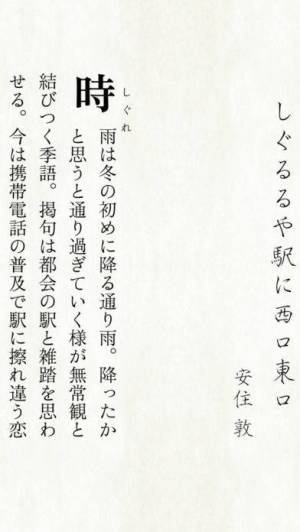 しぐるるや駅に西口東口
安住 敦
しぐれ
時雨は冬の初めに降る通り雨。降ったか
と思うと通り過ぎていく様が無常観と
結びつく季語。掲句は都会の駅と雑踏を思わ
せる。今は携帯電話の普及で駅に擦れ違う恋